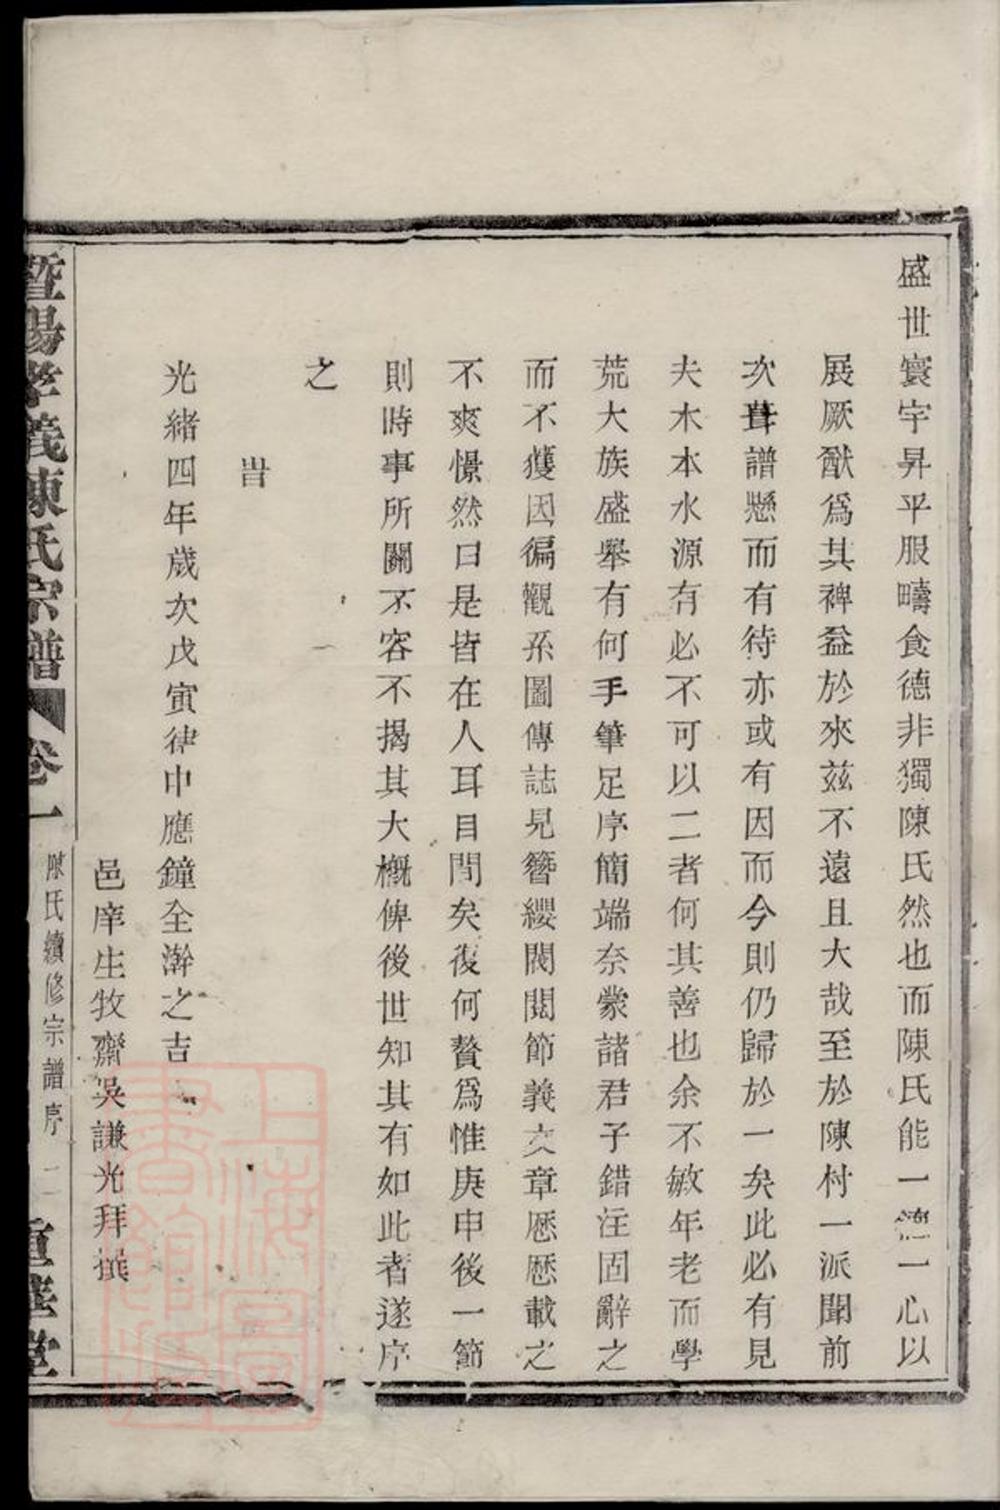 盛世寰宇昇平服疇食德非獨陳氏然也而陳氏能一德一心以
展厥猷爲其裨益於來茲不遠且大哉至於陳村一派聞前
次葺譜懸而有待亦或有因而今則仍歸於一矣此必有見
夫木本水源有必不可以二者何其善也余不敏年老而學
荒大族盛舉有何手筆足序簡端奈蒙諸君子錯注固辭之
而不獲因徧觀系圖傳誌見簪纓閥閱節義文章歷歷載之
不爽憬然曰是皆在人耳目間矣復何贅爲惟庚申後一節
則時事所關不容不揭其大槪俾後世知其有如此者遂序
之
旹
光緒四年歲次戊寅律中應鐘全澣之吉
邑庠生牧齋吳謙光拜撰
暨陽孝義陳氏宗譜 卷一 陳氏續修宗譜序 二 重華堂
上海圖書館藏